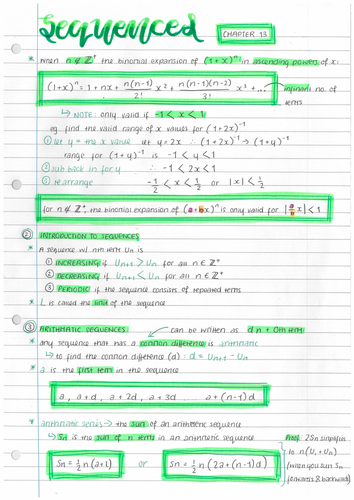 Sequenced
CHAPTER 13
* when n ∉ ℤ⁺ the binomial expansion of (1+x)ⁿ in ascending powers of x:
(1+x)ⁿ = 1 + nx + n(n-1)/2! x² + n(n-1)(n-2)/3! x³ + ... infinite no. of
terms
↳ NOTE: only valid if -1 < x < 1
eg. find the valid range of x values for (1+2x)⁻¹
① let y = the x value let y = 2x ∴ (1+2x)⁻¹ → (1+y)⁻¹
range for (1+y)⁻¹ is -1 < y < 1
② sub back in for y ∴ -1 < 2x < 1
③ re arrange -1/2 < x < 1/2 or |x| < 1/2
for n ∉ ℤ⁺, the binomial expansion of (a+bx)ⁿ is only valid for |a/b x| < 1
② INTRODUCTION TO SEQUENCES
* A sequence w/ nth term Un is
① INCREASING if Un+1 > Un for all n ∈ ℤ⁺
② DECREASING if Un+1 < Un for all n ∈ ℤ⁺
③ PERIODIC if the sequence consists of repeated terms
* L is called the limit of the sequence
③ ARITHMATIC SEQUENCES can be written as dn + 0th term
* any sequence that has a common difference is arithmatic
↳ to find the common difference (d): d = Un+1 - Un
* a is the first term in the sequence
a, a+d, a+2d, a+3d a+(n-1)d
* arithmatic series → the sum of an arithmatic sequence
↳ Sn is the sum of n terms in an arithmatic sequence
Sn = ½n(a+L) or Sn = ½n(2a+(n-1)d)
Proof: 2Sn simplifies
to n(U₁+Un)
(when you sum Sn
forwards & backward)